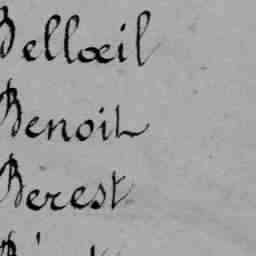 Bellœil
Benoit
Berest